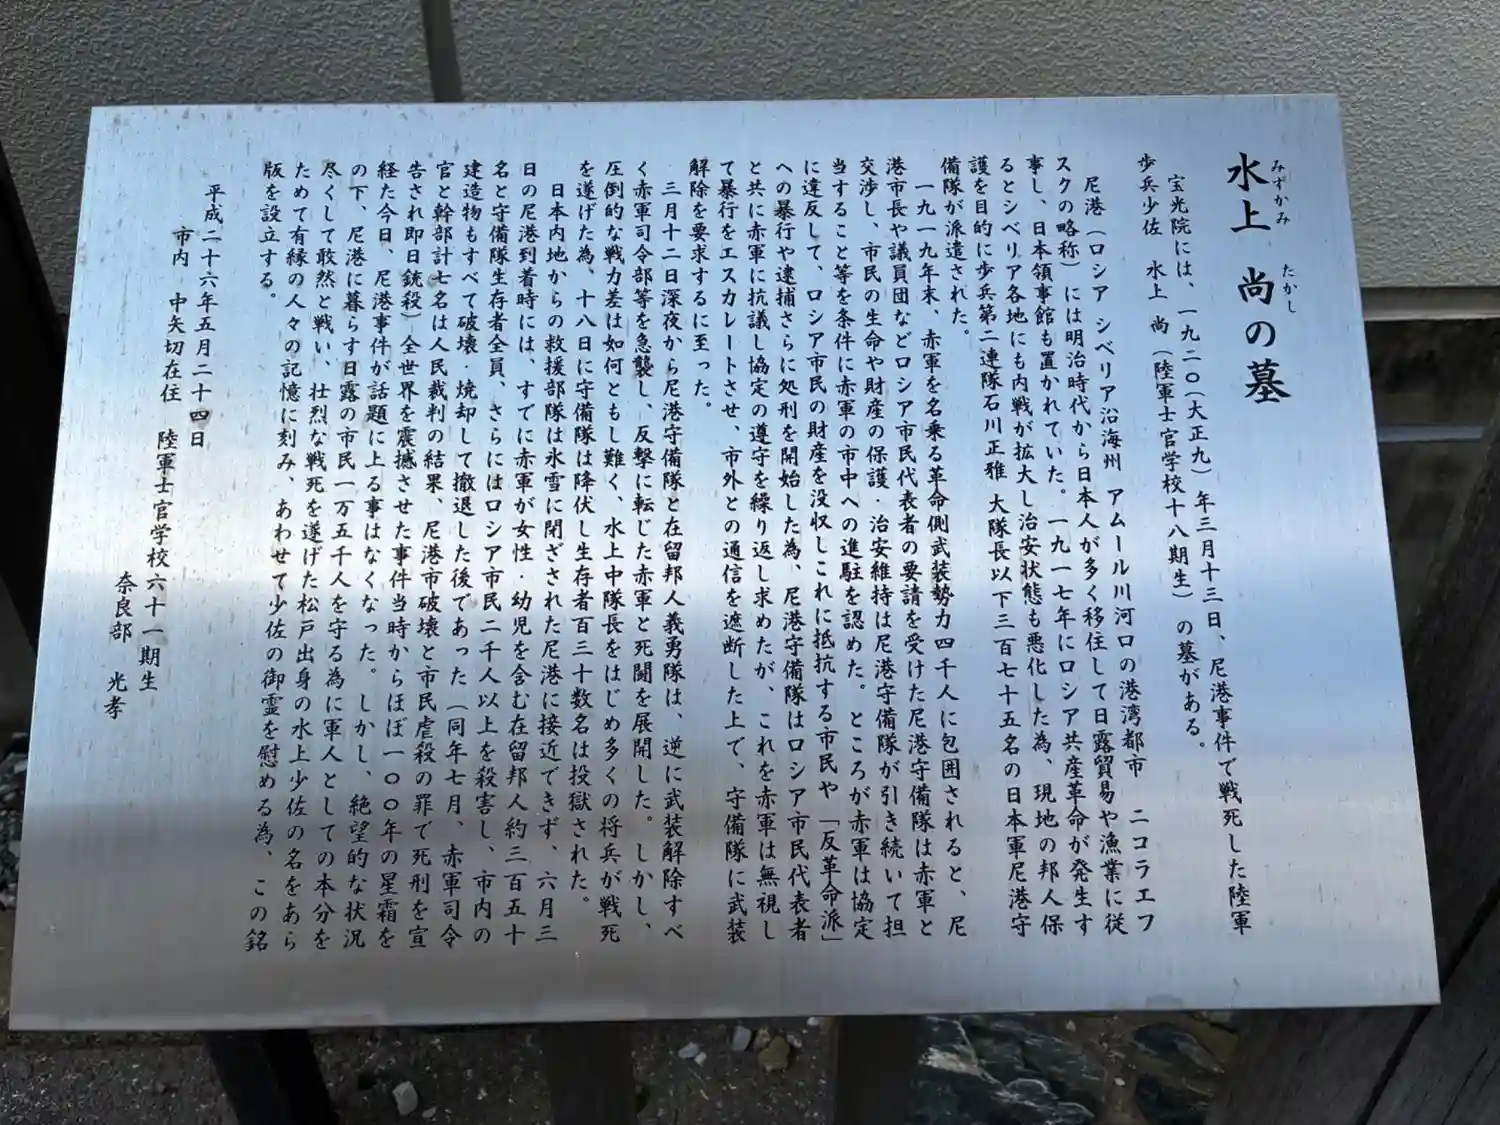 水上 尚の墓
みずかみ たかし
宝光院には、一九二〇(大正九)年三月十三日、尼港事件で戦死した陸軍
歩兵少佐 水上 尚(陸軍士官学校十八期生)の墓がある。
尼港(ロシア シベリア沿海州 アムール川河口の港湾都市 ニコラエフ
スクの略称)には明治時代から日本人が多く移住して日露貿易や漁業に従
事し、日本領事館も置かれていた。一九一七年にロシア共産革命が発生す
るとシベリア各地にも内戦が拡大し治安状態も悪化した為、現地の邦人保
護を目的に歩兵第二連隊石川正雅 大隊長以下三百七十五名の日本軍尼港守
備隊が派遣された。
一九一九年末、赤軍を名乗る革命側武装勢力四千人に包囲されると、尼
港市長や議員団などロシア市民代表者の要請を受けた尼港守備隊は赤軍と
交渉し、市民の生命や財産の保護・治安維持は尼港守備隊が引き続いて担
当すること等を条件に赤軍の市中への進駐を認めた。ところが赤軍は協定
に違反して、ロシア市民の財産を没収しこれに抵抗する市民や「反革命派」
への暴行や逮捕さらに処刑を開始した為、尼港守備隊はロシア市民代表者
と共に赤軍に抗議し協定の遵守を繰り返し求めたが、これを赤軍は無視し
て暴行をエスカレートさせ、市外との通信を遮断した上で、守備隊に武装
解除を要求するに至った。
三月十二日深夜から尼港守備隊と在留邦人義勇隊は、逆に武装解除すべ
く赤軍司令部等を急襲し、反撃に転じた赤軍と死闘を展開した。しかし、
圧倒的な戦力差は如何ともし難く、水上中隊長をはじめ多くの将兵が戦死
を遂げた為、十八日に守備隊は降伏し生存者百三十数名は投獄された。
日本内地からの救援部隊は氷雪に閉ざされた尼港に接近できず、六月三
日の尼港到着時には、すでに赤軍が女性・幼児を含む在留邦人約三百五十
名と守備隊生存者全員、さらにはロシア市民二千人以上を殺害し、市内の
建造物もすべて破壊・焼却して撤退した後であった(同年七月、赤軍司令
官と幹部計七名は人民裁判の結果、尼港市破壊と市民虐殺の罪で死刑を宣
告され即日銃殺)全世界を震撼させた事件当時からほぼ一〇〇年の星霜を
経た今日、尼港事件が話題に上る事はなくなった。しかし、絶望的な状況
の下、尼港に暮らす日露の市民一万五千人を守る為に軍人としての本分を
尽くして敢然と戦い、壮烈な戦死を遂げた松戸出身の水上少佐の名をあら
ためて有縁の人々の記憶に刻み、あわせて少佐の御霊を慰める為、この銘
版を設立する。
平成二十六年五月二十四日
市内 中矢切在住 陸軍士官学校六十一期生
奈良部 光孝